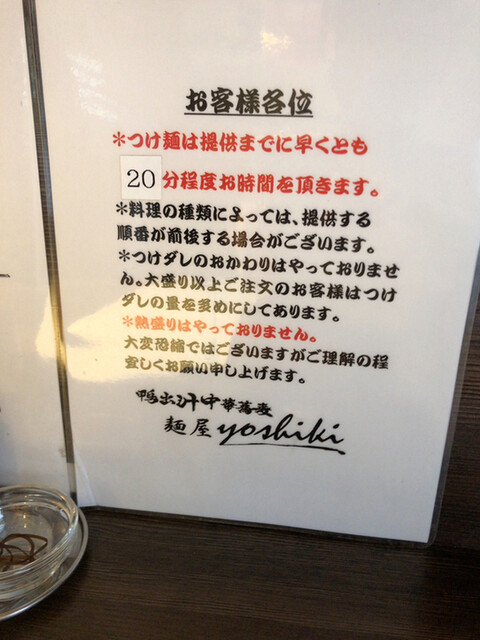 お客様各位
＊つけ麺は提供までに早くとも
20分程度お時間を頂きます。
＊料理の種類によっては、提供する
順番が前後する場合がございます。
＊つけダレのおかわりはやっておりませ
ん。大盛り以上ご注文のお客様はつけ
ダレの量を多めにしてあります。
＊熱盛りはやっておりません。
大変恐縮ではございますがご理解の程
宜しくお願い申し上げます。
鴨出汁中華蕎麦
麺屋yoshiki